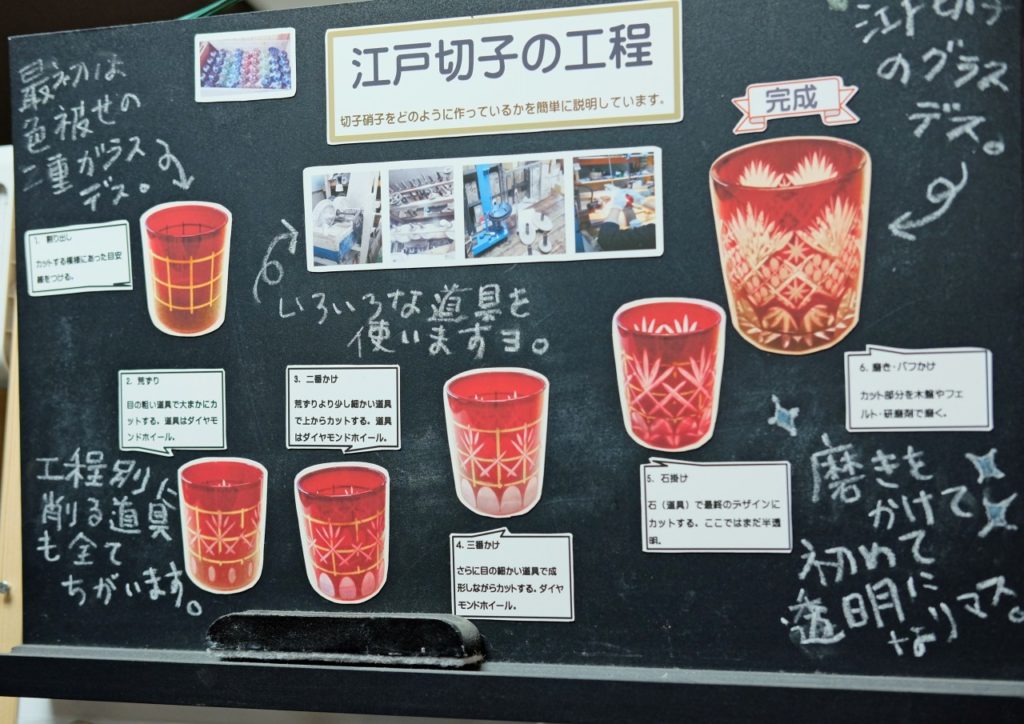 江戸切子の工程
切子硝子をどのように作っているかを簡単に説明しています。
最初は
色被せの
二重ガラス
デス。
江戸切子
のグラス
デス。
完成
1. 割り出し
カットする模様にあった目安
線をつける。
いろいろな道具を
使いますヨ。
2. 荒ずり
目の粗い道具で大まかにカ
ットする。道具はダイヤモ
ンドホイール。
3. 二番かけ
荒ずりより少し細かい道具
で上からカットする。道具
はダイヤモンドホイール。
4. 三番かけ
さらに目の細かい道具で成
形しながらカットする。ダイヤ
モンドホイール。
5. 石掛け
石(道具)で最終のデザインに
カットする。ここではまだ半透
明。
6. 磨き・バフかけ
カット部分を木盤やフェ
ルト・研磨剤で磨く。
工程別に
削る道具
も全て
ちがいます。
磨きを
かけて
初めて
透明に
なりマス。